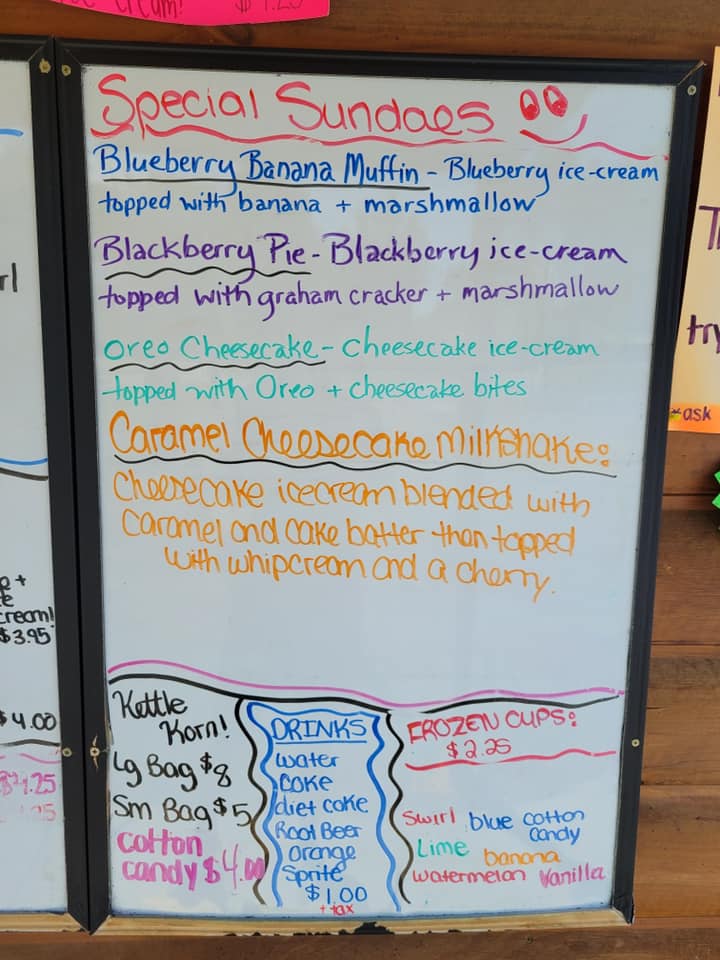 cream! $1.25
Special Sundaes
Blueberry Banana Muffin - Blueberry ice-cream
topped with banana + marshmallow
Blackberry Pie - Blackberry ice-cream
topped with graham cracker + marshmallow
Oreo Cheesecake - Cheesecake ice-cream
topped with Oreo + cheesecake bites
Caramel Cheesecake Milkshake:
Cheesecake icecream blended with
Caramel and cake batter then topped
with whipcream and a cherry.
Kettle
Korn!
Lg Bag $8
Sm Bag $5
Cotton
candy $4.00
DRINKS
water
Coke
diet coke
Root Beer
Orange
Sprite
$1.00
+ tax
FROZEN CUPS:
$2.25
Swirl blue cotton
candy
Lime banana
watermelon Vanilla
cream!
$3.95
$4.00
try
ask